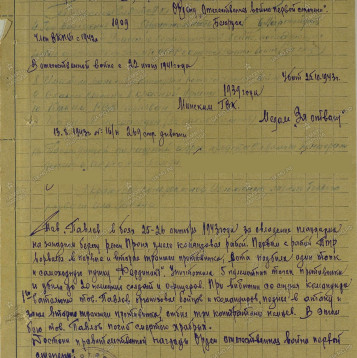 Орден Отечественная война первой степени"
1909 Белорус
Член ВКП(б) с 1942г.
В отечественной войне с 22 июня 1941 года
Убит 25.10.1943г.
1939 года
Минским ГВК.
Медаль "За отвагу"
13.8.1943г. № 16/н 269 стр. дивизии
Тов. Павлов в боях 25-26 октября 1943 года за овладение плацдарма
на западном берегу реки Проня умело командовал ротой. Первым с ротой
ворвался в первую и вторую траншеи противника. Рота подбила один танк
и самоходную пушку "Фердинанд". Уничтожила 5 пулеметных точек противника
и убила до 20 немецких солдат и офицеров. При выбытии из строя командира
батальона тов. Павлов, бойцов и командиров, поднял в атаку и
занял вторую траншею противника, отбив три контратаки немцев. В этом
бою тов. Павлов погиб смертью храбрых.
Достоин правительственной награды Орден отечественная война первой
степени"